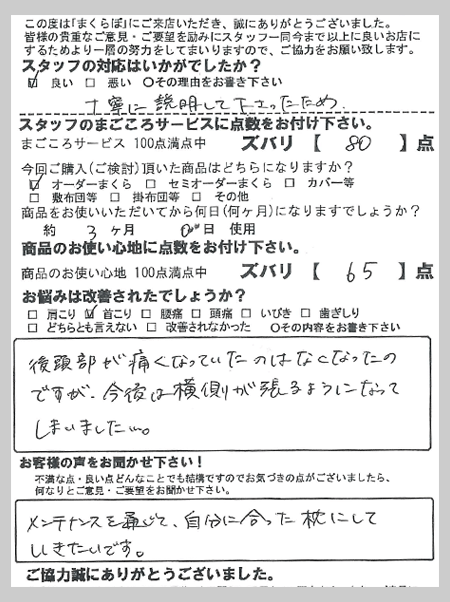 この度は「まくらぼ」にご来店いただき、誠にありがとうございました。
皆様の貴重なご意見・ご要望を励みにスタッフ一同今まで以上に良いお店に
するためより一層の努力をしてまいりますので、ご協力をお願い致します。
スタッフの対応はいかがでしたか?
☑ 良い □ 悪い ○その理由をお書き下さい
丁寧に説明して下さったため.
スタッフのまごころサービスに点数をお付け下さい。
まごころサービス 100点満点中 ズバリ【 80 】点
今回ご購入(ご検討)頂いた商品はどちらになりますか?
☑ オーダーまくら □ セミオーダーまくら □ カバー等
□ 敷布団等 □ 掛布団等 □ その他
商品をお使いいただいてから何日(何ヶ月)になりますでしょうか?
約 3 ヶ月 日 使用
商品のお使い心地に点数をお付け下さい。
商品のお使い心地 100点満点中 ズバリ【 65 】点
お悩みは改善されたでしょうか?
□ 肩こり ☑ 首こり □ 腰痛 □ 頭痛 □ いびき □ 歯ぎしり
□ どちらとも言えない □ 改善されなかった ○その内容をお書き下さい
後頭部が痛くなっていたのはなくなったの
ですが、今後は横側が張るようになって
しまいました…。
お客様の声をお聞かせ下さい!
不満な点・良い点どんなことでも結構ですのでお気づきの点がございましたら、
何なりとご意見・ご要望をお聞かせ下さい。
メンテナンスを通じて、自分に合った枕にして
いきたいです。
ご協力誠にありがとうございました。